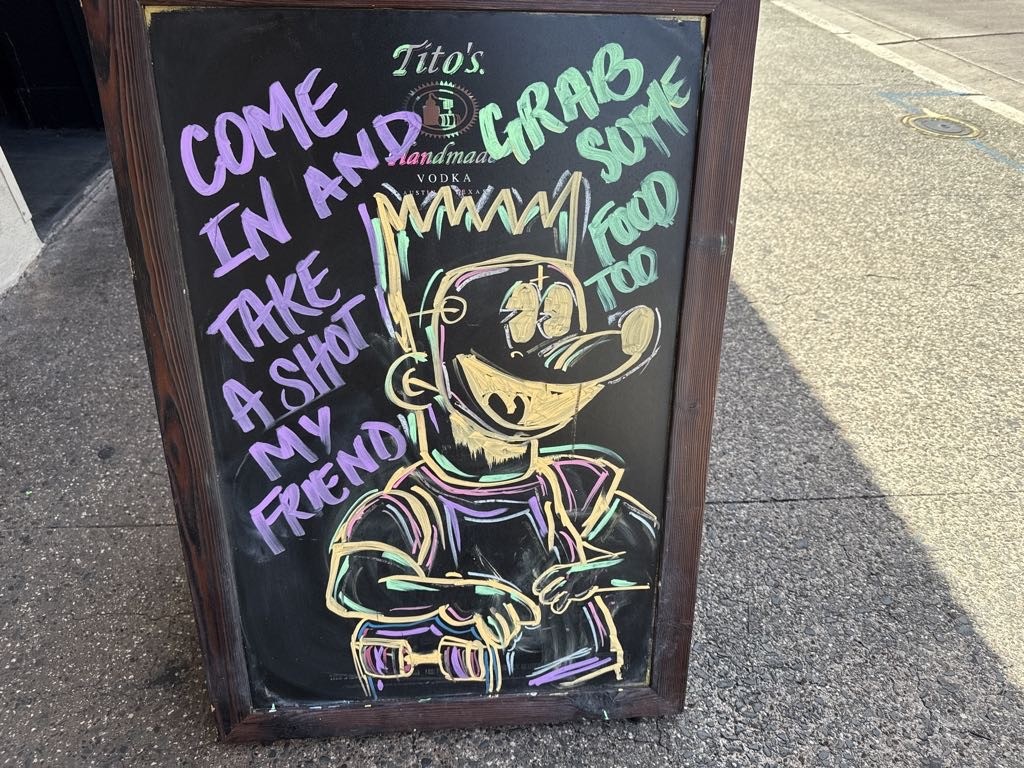 Tito's.
Handmade
VODKA
COME
IN AND
TAKE
A SHOT
MY
FRIEND
GRAB
SOME
FOOD
TOO